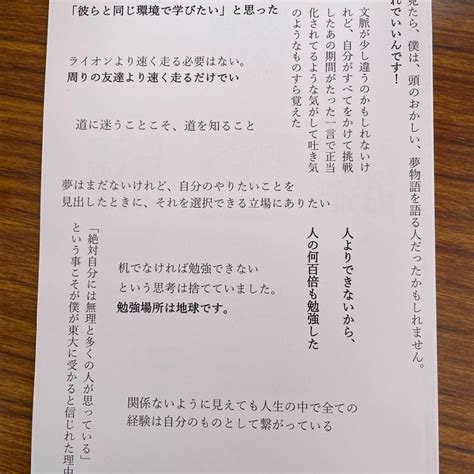 「彼らと同じ環境で学びたい」と思った
見たら、僕は、頭のおかしい、夢物語を語る人だったかもしれません。
れでいいんです!
文脈が少し違うのかもしれないけ
れど、自分がすべてをかけて挑戦
したあの期間がたった一言で正当
化されてるような気がして吐き気
のようなものすら覚えた
ライオンより速く走る必要はない。
周りの友達より速く走るだけでい
道に迷うことこそ、道を知ること
夢はまだないけれど、自分のやりたいことを
見出したときに、それを選択できる立場にありたい
人よりできないから、
人の何百倍も勉強した
机でなければ勉強できない
という思考は捨てていました。
勉強場所は地球です。
「絶対自分には無理と多くの人が思っている」
という事こそが僕が東大に受かると信じれた理由
関係ないように見えても人生の中で全ての
経験は自分のものとして繋がっている